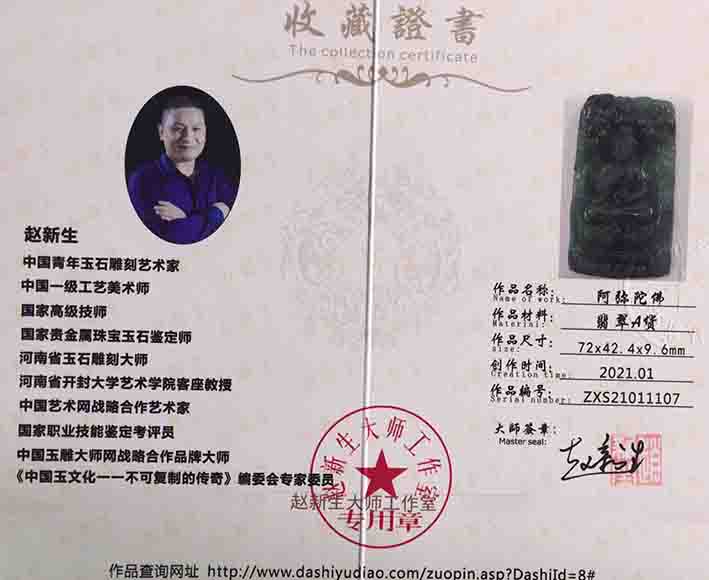 收藏證書
The collection certificate
赵新生
中国青年玉石雕刻艺术家
中国一级工艺美术师
国家高级技师
国家贵金属珠宝玉石鉴定师
河南省玉石雕刻大师
河南省开封大学艺术学院客座教授
中国艺术网战略合作艺术家
国家职业技能鉴定考评员
中国玉雕大师网战略合作品牌大师
《中国玉文化一一不可复制的传奇》编委会专家委员
赵新生大师工作室
赵新生大师工作室
专用章
作品名称：阿弥陀佛
Name of work:
作品材料：翡翠A货
Material:
作品尺寸：72x42.4x9.6mm
size:
创作时间：2021.01
Creation time:
作品编号：ZXS21011107
Serial number:
大师签章：赵新生
Master seal:
作品查询网址 http://www.dashiyudiao.com/zuopin.asp?DashiId=8#